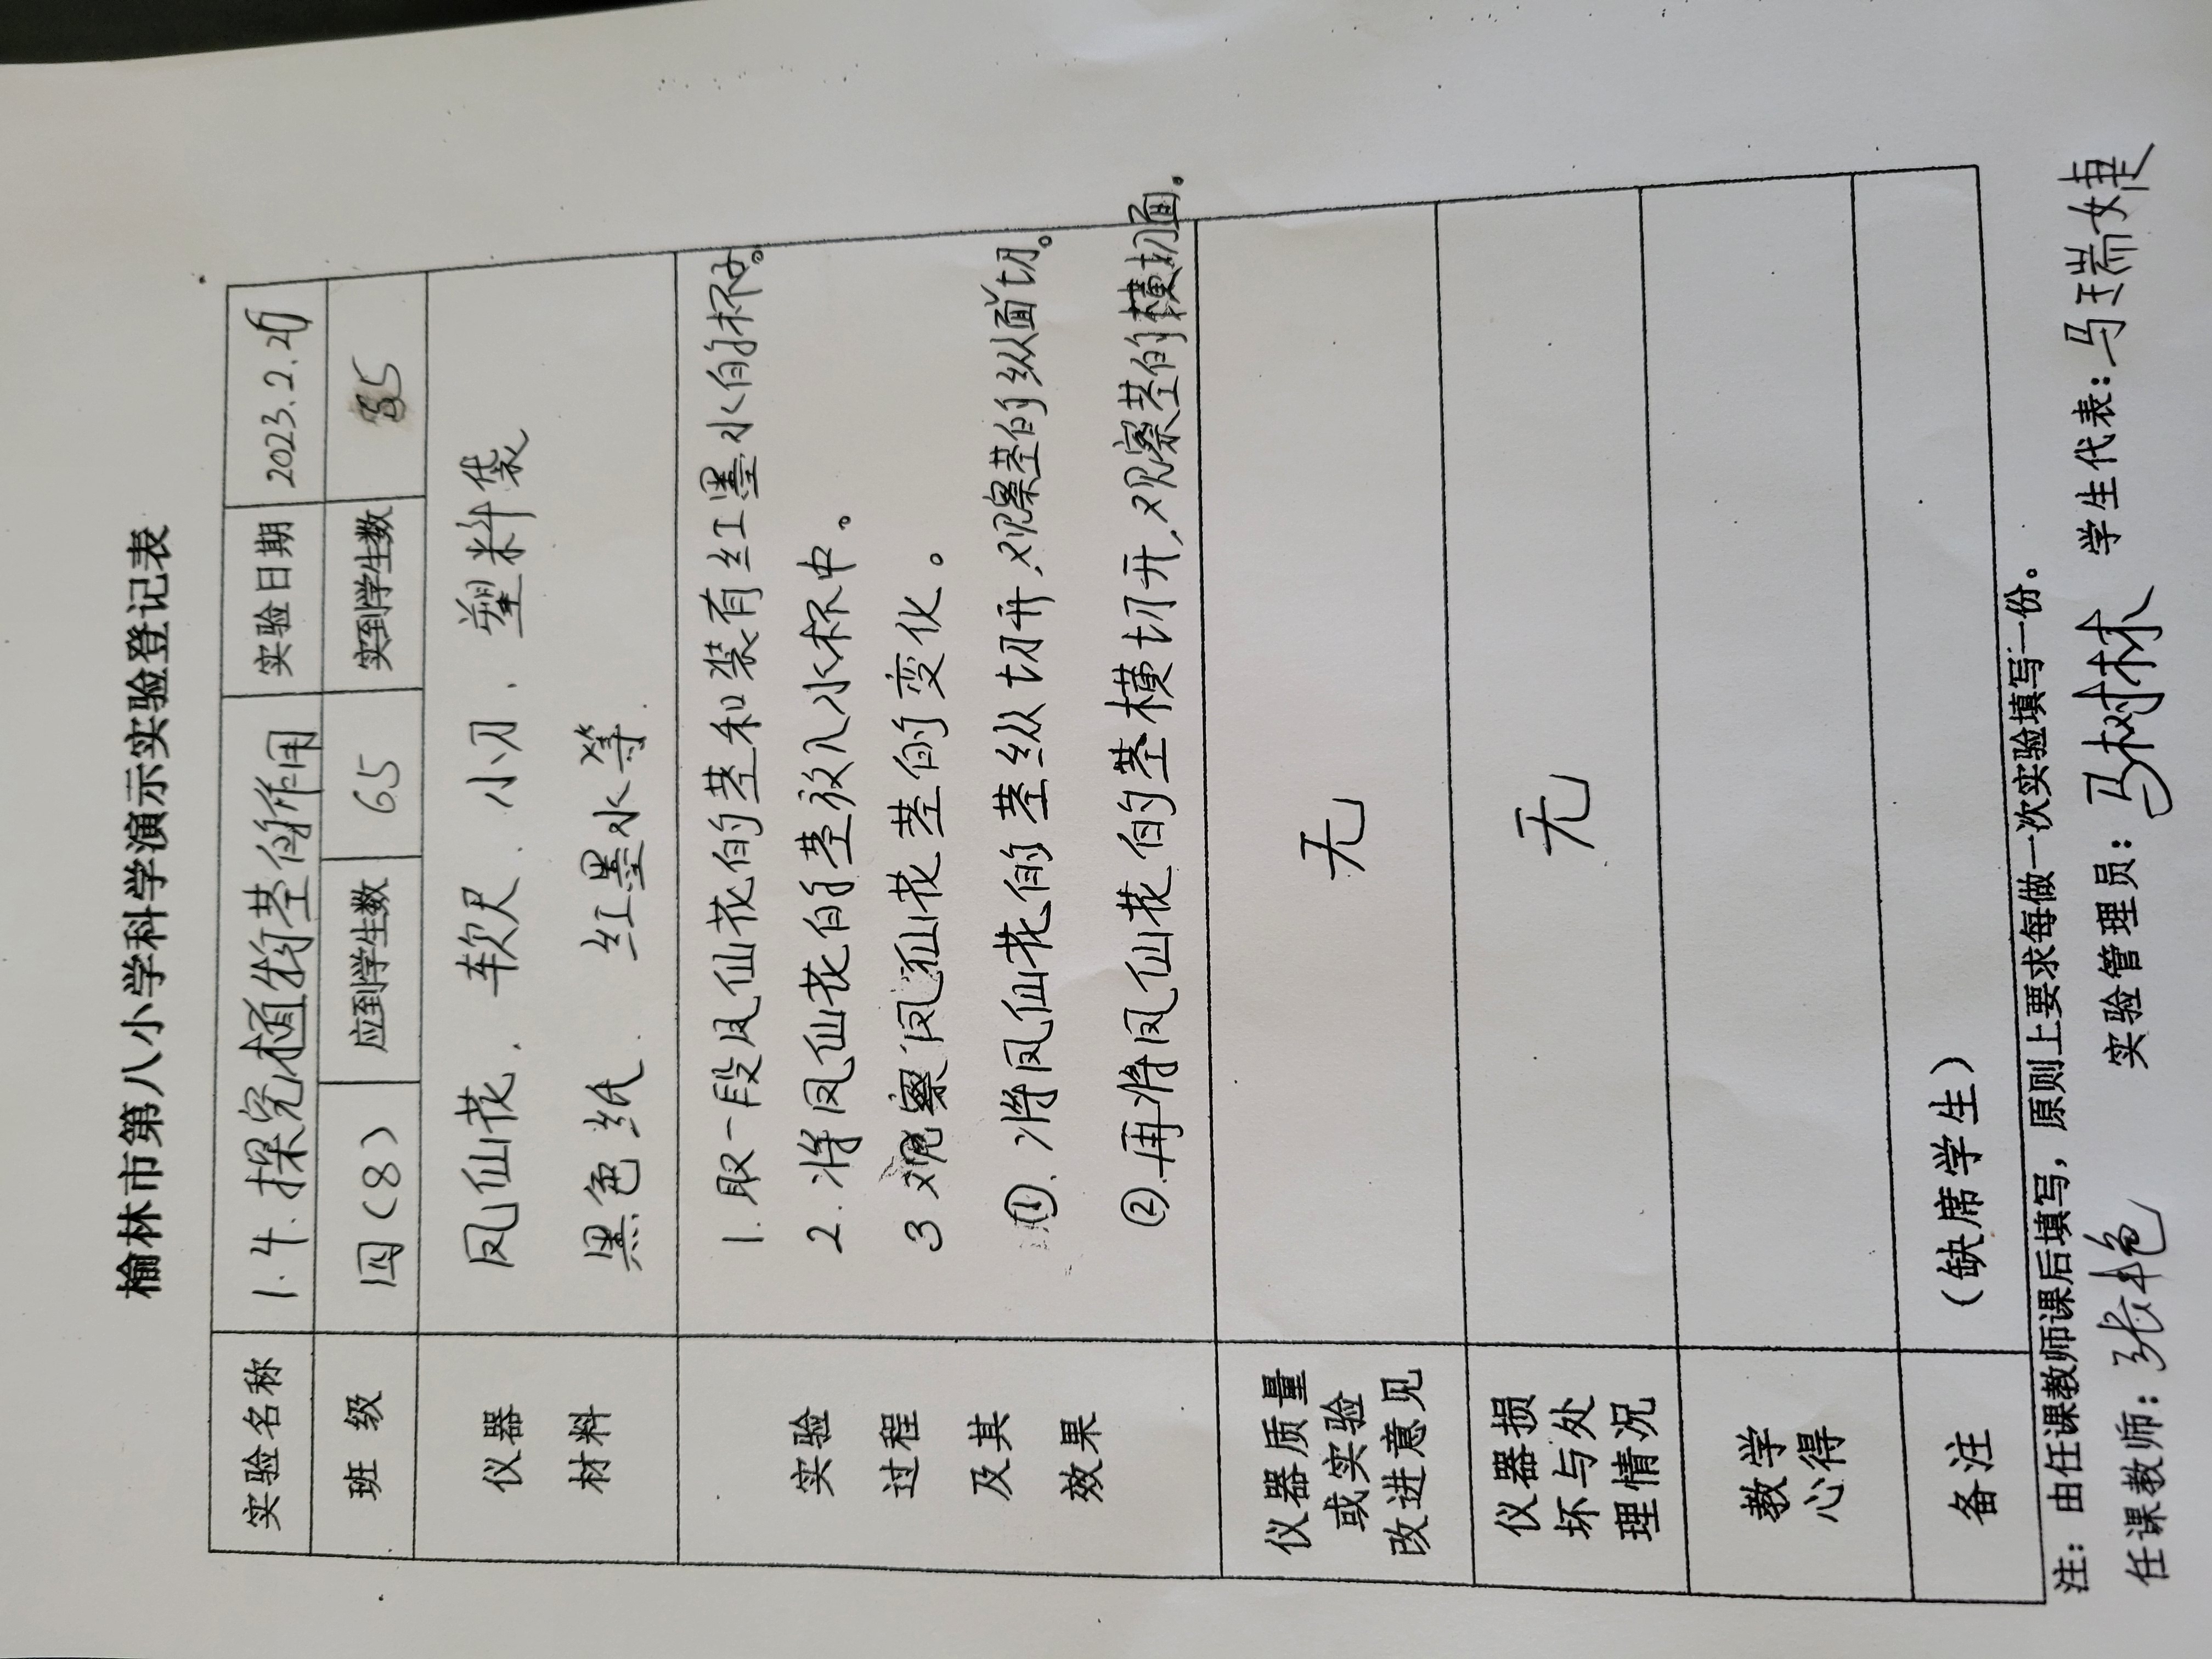 榆林市第八小学科学演示实验登记表
实验名称 1.4.探究植物茎的作用 实验日期 2023.2.26
班 级 四(8) 应到学生数 65 实到学生数
仪器 凤仙花、软尺、小刀、塑料袋
材料 黑色纸、红墨水等.
1.取一段凤仙花的茎和装有红墨水的杯子。
实验 2.将凤仙花的茎放入水杯中。
过程 3 观察凤仙花茎的变化。
及其 ①.将凤仙花的茎纵切开,观察茎的纵面切。
效果 ②.再将凤仙花的茎横切开,观察茎的横切面。
仪器质量
或实验 无
改进意见
仪器损
坏与处 无
理情况
教学
心得
备注 (缺席学生)
注：由任课教师课后填写，原则上要求每做一次实验填写一份。
任课教师：张艳 实验管理员：马树林 学生代表：马瑞婕